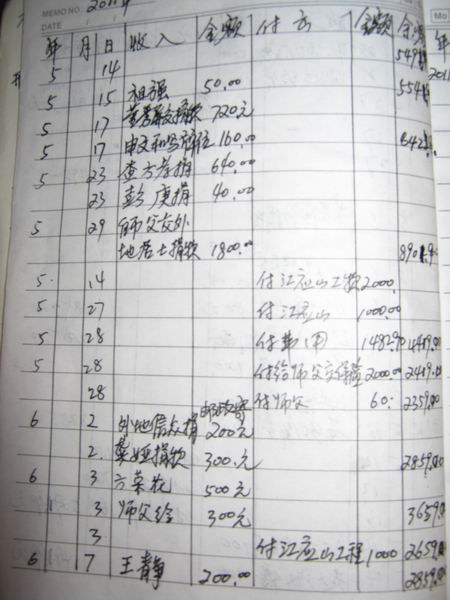 MEMO NO.
2011年
DATE / /
年 月 日 收入 金额 付方 金额 余额
5 14
5 15 祖强 50.00
5 17 720元
5 17 160.00
5 23 查方孝捐 640.00
23 彭庚捐 40.00
5 29 师父交外
地居士捐款 1800.00
5 14 付江应山工款 2000.
5 27 付江应山 1000.00
5 28 付费用 1482.90 4419.00
5 28 付给师父 2000.00 2419.00
28 付师父 60. 2359.00
邮政寄
6 2 外地信众捐 200元
2 捐款 300元 2859.00
6 3 500元
3 师父给 300元 3659.00
3 付江应山工程 1000 2659.00
6 7 王静 200.00 2859.00